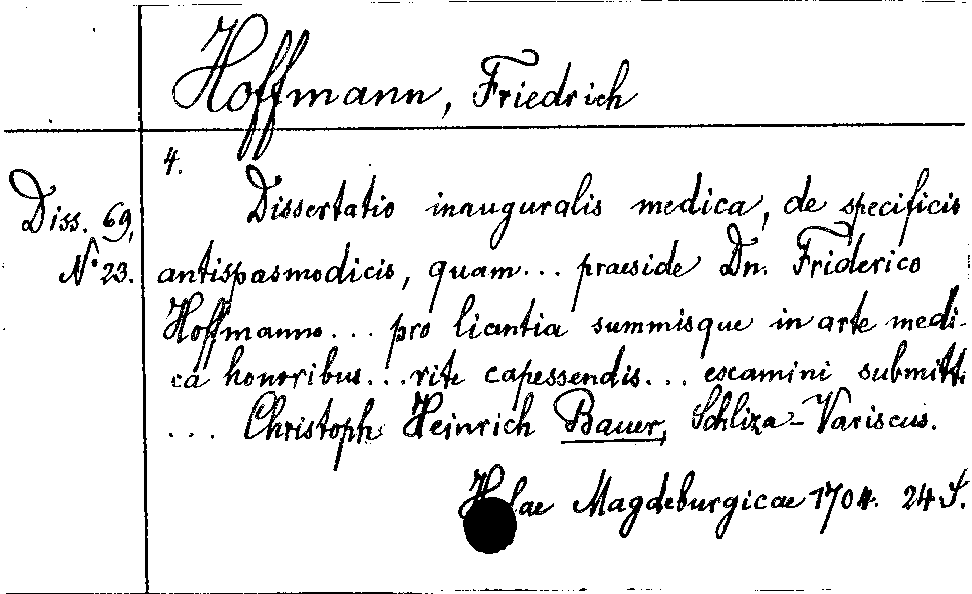 Hoffmann, Friedrich
4.
Diss. 69,
No 23.
Dissertatio inauguralis medica, de specificis
antispasmodicis, quam... praeside Dn. Friderico
Hoffmanno... pro licantia summisque in arte medi-
ca honoribus...rite capessendis... examini submitt.
... Christoph Heinrich Bauer, Schliza-Variscus.
Halae Magdeburgicae 1704. 24 S.